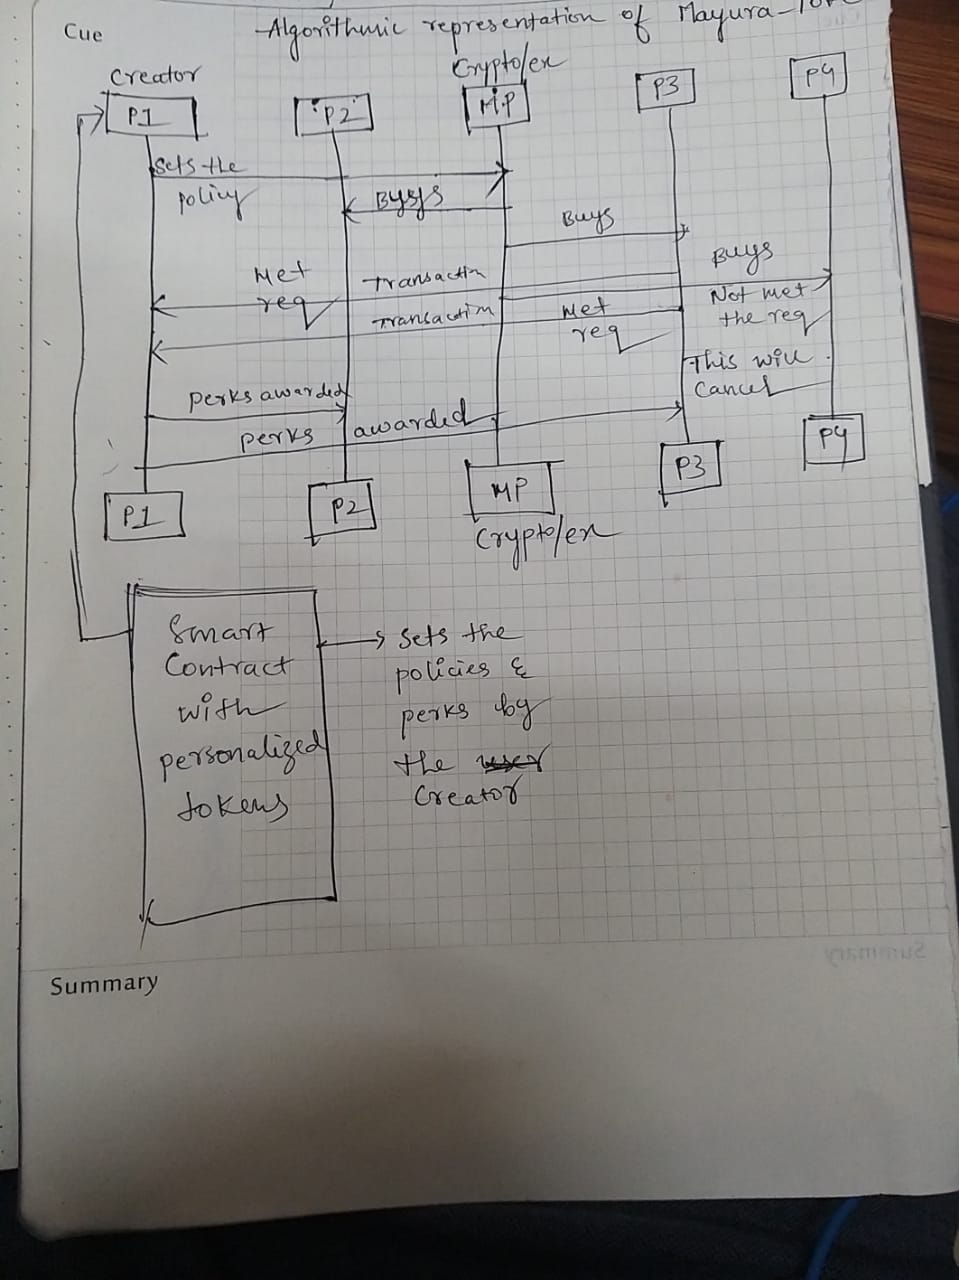 Cue
Algorithmic representation of Mayura-
Creator
Crypto/ex
P1
P2
M.P
P3
P4
Sets the
policy
Buys
Buys
Met
req
Transactin
Buys
Transaction
Met
req
Not met
the req
This will
Cancel
perks awarded
perks awarded
P1
P2
MP
P3
P4
Crypto/ex
Smart
Contract
with
personalized
tokens
Sets the
policies &
perks by
the
Creator
Summary
Summary